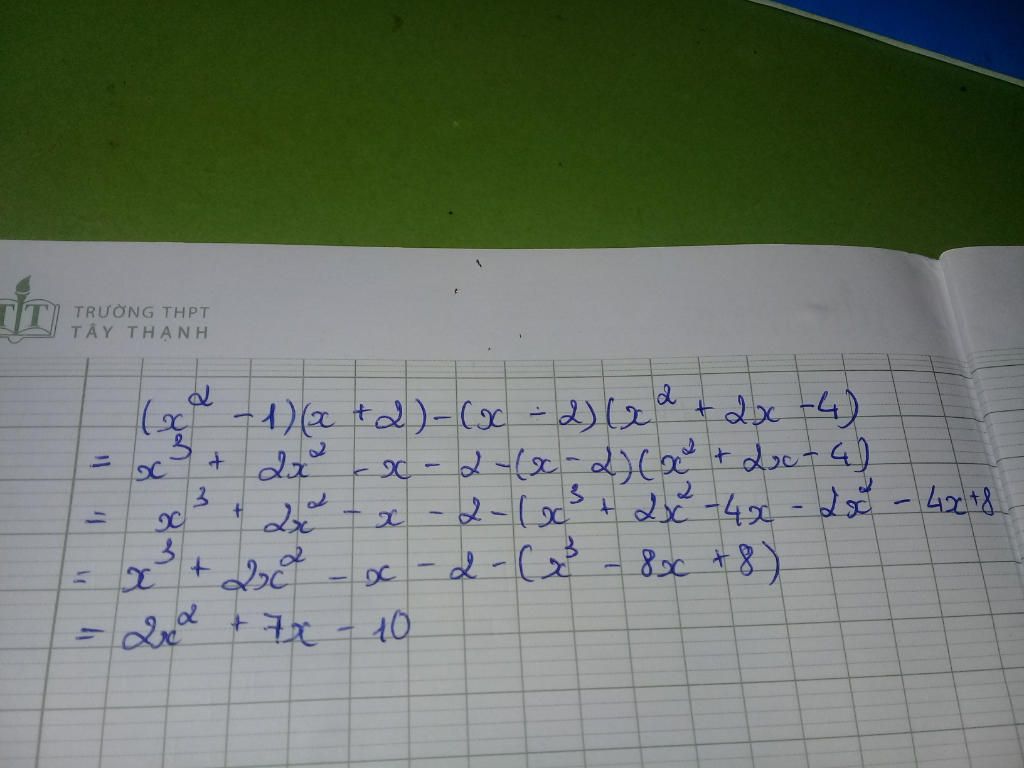 TRƯỜNG THPT
TÂY THẠNH
(x² - 1)(x + 2) - (x - 2)(x² + 2x - 4)
= x³ + 2x² - x - 2 - (x - 2)(x² + 2x - 4)
= x³ + 2x² - x - 2 - (x³ + 2x² - 4x - 2x² - 4x + 8
= x³ + 2x² - x - 2 - (x³ - 8x + 8)
= 2x² + 7x - 10